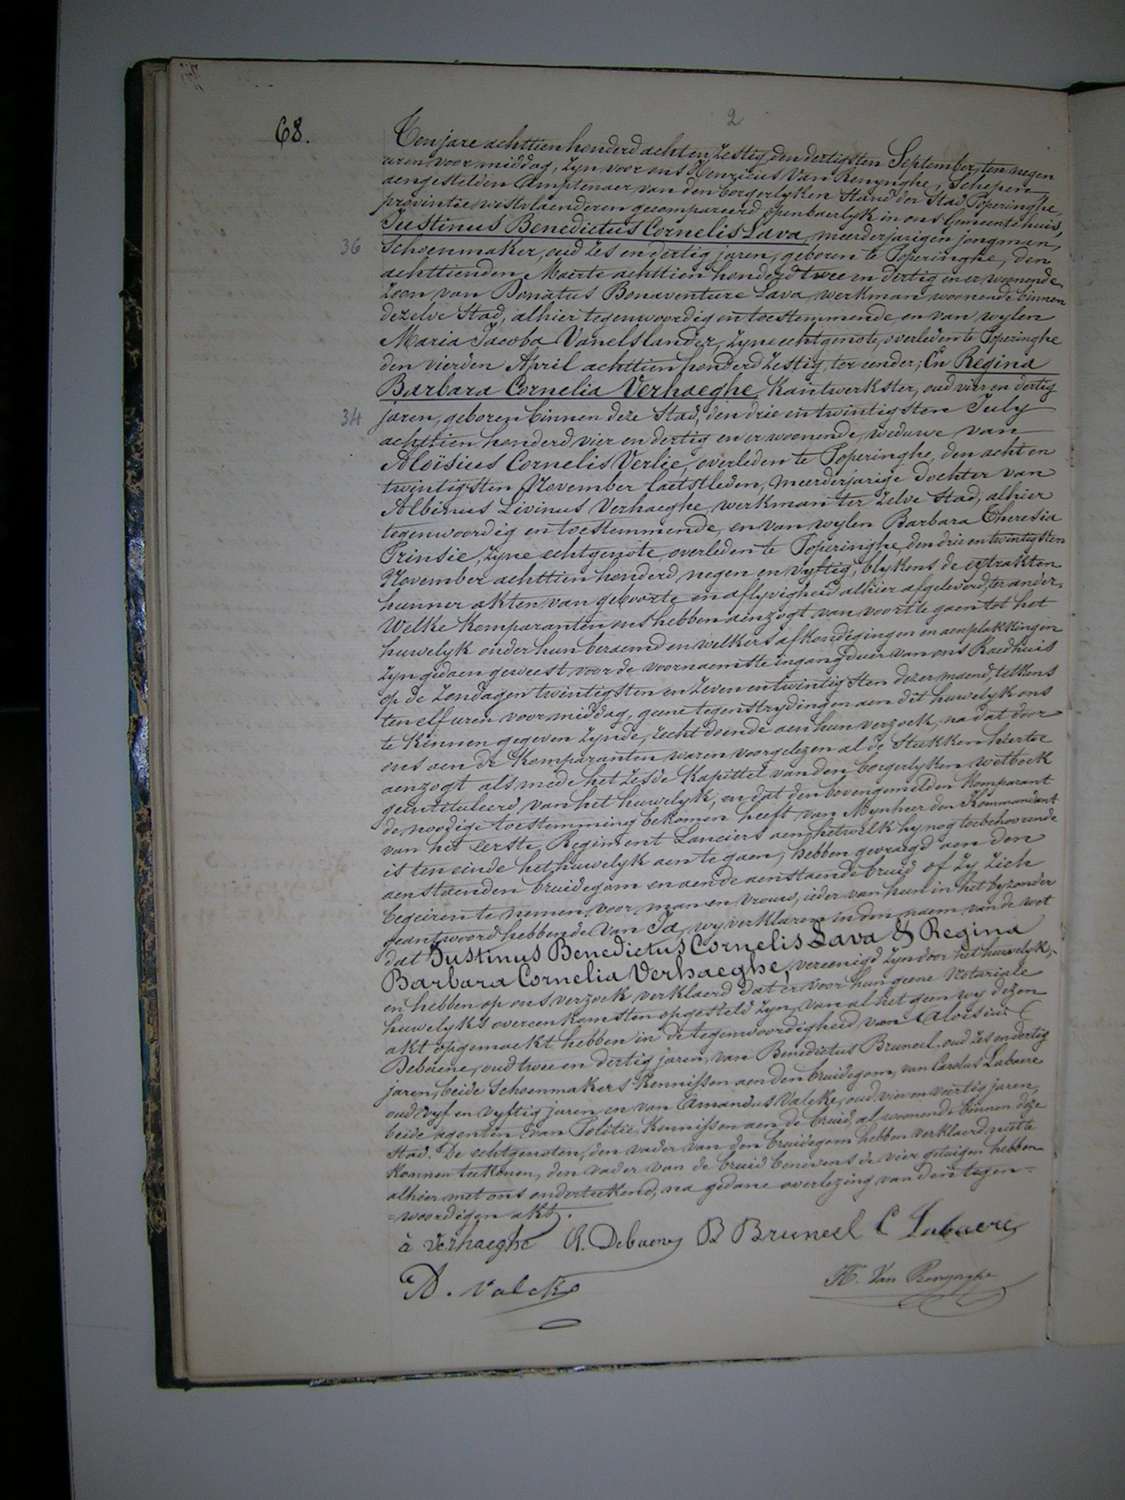 2
68.
Ten jare achttien honderd acht en zestig, den dertigsten September, ten negen
uren voormiddag, zyn voor ons Henricus Van Renynghe, Schepen
aengestelden Amptenaer van den borgerlyken Stand der Stad Poperinghe,
provintie westvlaenderen gecompareerd openbaerlyk in ons Gemeentehuis,
Justinus Benedictus Cornelis Lava, meerderjarigen jongman,
36
Schoenmaker, oud zes en dertig jaren, geboren te Poperinghe, den
achttienden Maerte achttien honderd twee en dertig en er woonende
zoon van Donatus Bonaventure Lava, werkman woonende binnen
dezelve Stad, alhier tegenwoordig en toestemmende en van wylen
Maria Jacoba Vanelslander, zyne echtgenote, overleden te Poperinghe
den vierden April achttien honderd zestig, ter eender; En Regina
Barbara Cornelia Verhaeghe, Kantwerkster, oud vier en dertig
34
jaren, geboren binnen deze Stad, den drie en twintigsten July
achttien honderd vier en dertig en er woonende, weduwe van
Aloïsius Cornelis Verlie, overleden te Poperinghe, den acht en
twintigsten November laetstleden, meerderjarige dochter van
Albinus Livinus Verhaeghe, werkman ter zelve Stad, alhier
tegenwoordig en toestemmende, en van wylen Barbara Theresia
Prinsie, zyne echtgenote overleden te Poperinghe den drie en twintigsten
November achttien honderd negen en vyftig, blykens de extrakten
hunner akten van geboorte en aflyvigheid alhier afgeleverd, ter ander.
Welke Komparanten ons hebben aenzogt van voort te gaen tot het
huwelyk onder hun beraemd en welkers afkondigingen en aenplakkingen
zyn gedaen geweest voor de voornaemste ingangdeur van ons Raedhuis
op de Zondagen twintigsten en zeven en twintigsten dezer maend, telkens
ten elf uren voormiddag, geene tegenstrydingen aen dit huwelyk ons
te kennen gegeven zynde, recht doende aen hun verzoek, na dat door
ons aen de Komparanten waren voorgelezen al de Stukken hiertoe
aenzogt als mede het zesde Kapittel van den borgerlyken wetboek
geintituleerd, van het huwelyk; en dat den bovengemelden Komparant
de noodige toestemming bekomen heeft van Mynheer den Kommandant
van het eerste Regiment Lanciers aen hetwelk hy nog toebehoorende
is ten einde het huwelyk aen te gaen, hebben gevraegd aen den
aenstaenden bruidegom en aen de aenstaende bruid of zy zich
begeiren te nemen voor man en vrouw, ieder van hun in het byzonder
geantwoord hebbende van Ja, wy verklaren in den naem van de wet
dat Justinus Benedictus Cornelis Lava & Regina
Barbara Cornelia Verhaeghe, vereenigd zyn door het huwelyk,
en hebben op ons verzoek verklaerd dat er voor hun geene Notariale
huwelyks overeenkomsten opgesteld zyn, van al het geen wy dezen
akt opgemaekt hebben in de tegenwoordigheid van Aloisius
Debaene, oud twee en dertig jaren, van Benedictus Bruneel, oud zes en dertig
jaren, beide Schoenmakers Kennissen aen den bruidegom, van Carolus Labaere
oud vyf en vyftig jaren, en van Amandus Valcke, oud vier en veertig jaren,
beide agenten van Politie Kennissen aen de bruid, al woonende binnen deze
Stad. De echtgenoten, den vader van den bruidegom hebben verklaerd niet te
konnen teekenen, den vader van de bruid benevens de vier getuigen hebben
alhier met ons onderteekend, na gedane overlezing van den tegen=
=woordigen akt.
à verhaeghe A. Debaene B Bruneel C Labaere
A. valcke
H. Van Renynghe